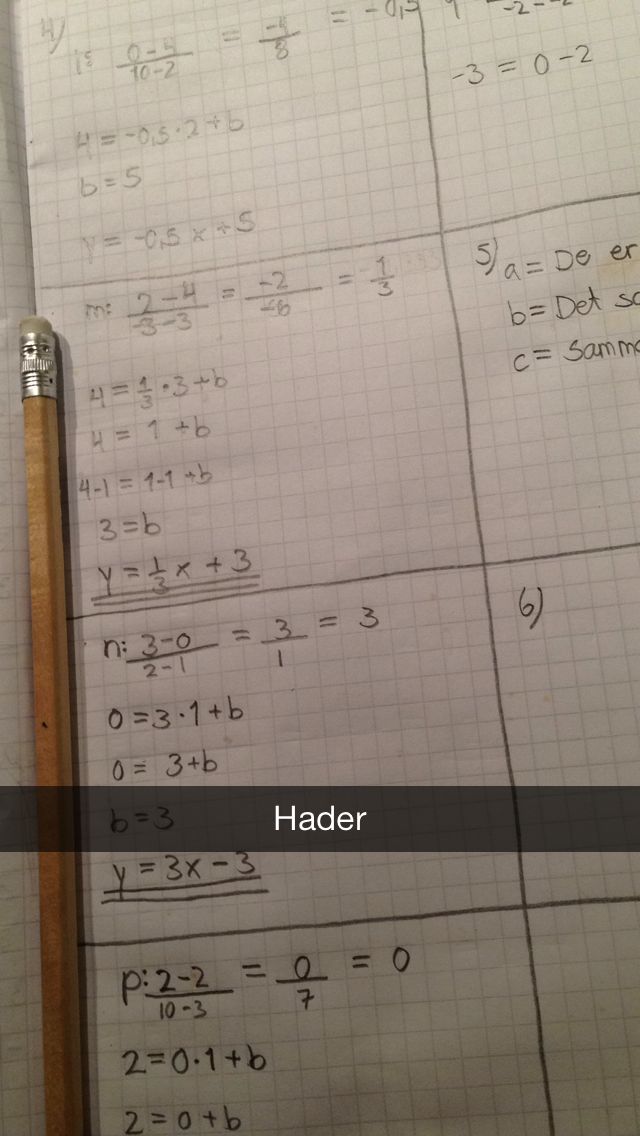 4)
l: 0-4/10-2 = -4/8 = -0,5
4 = -0,5·2+b
b=5
y = -0,5x+5
m: 2-4/-3-3 = -2/-6 = 1/3
4 = 1/3·3+b
4 = 1+b
4-1 = 1-1+b
3=b
y = 1/3x + 3
n: 3-0/2-1 = 3/1 = 3
0=3·1+b
0= 3+b
b=3
Hader
y = 3x-3
p: 2-2/10-3 = 0/7 = 0
2=0·1+b
2=0+b
-3 = 0-2
5) a= De er
b= Det
c= Samm
6)